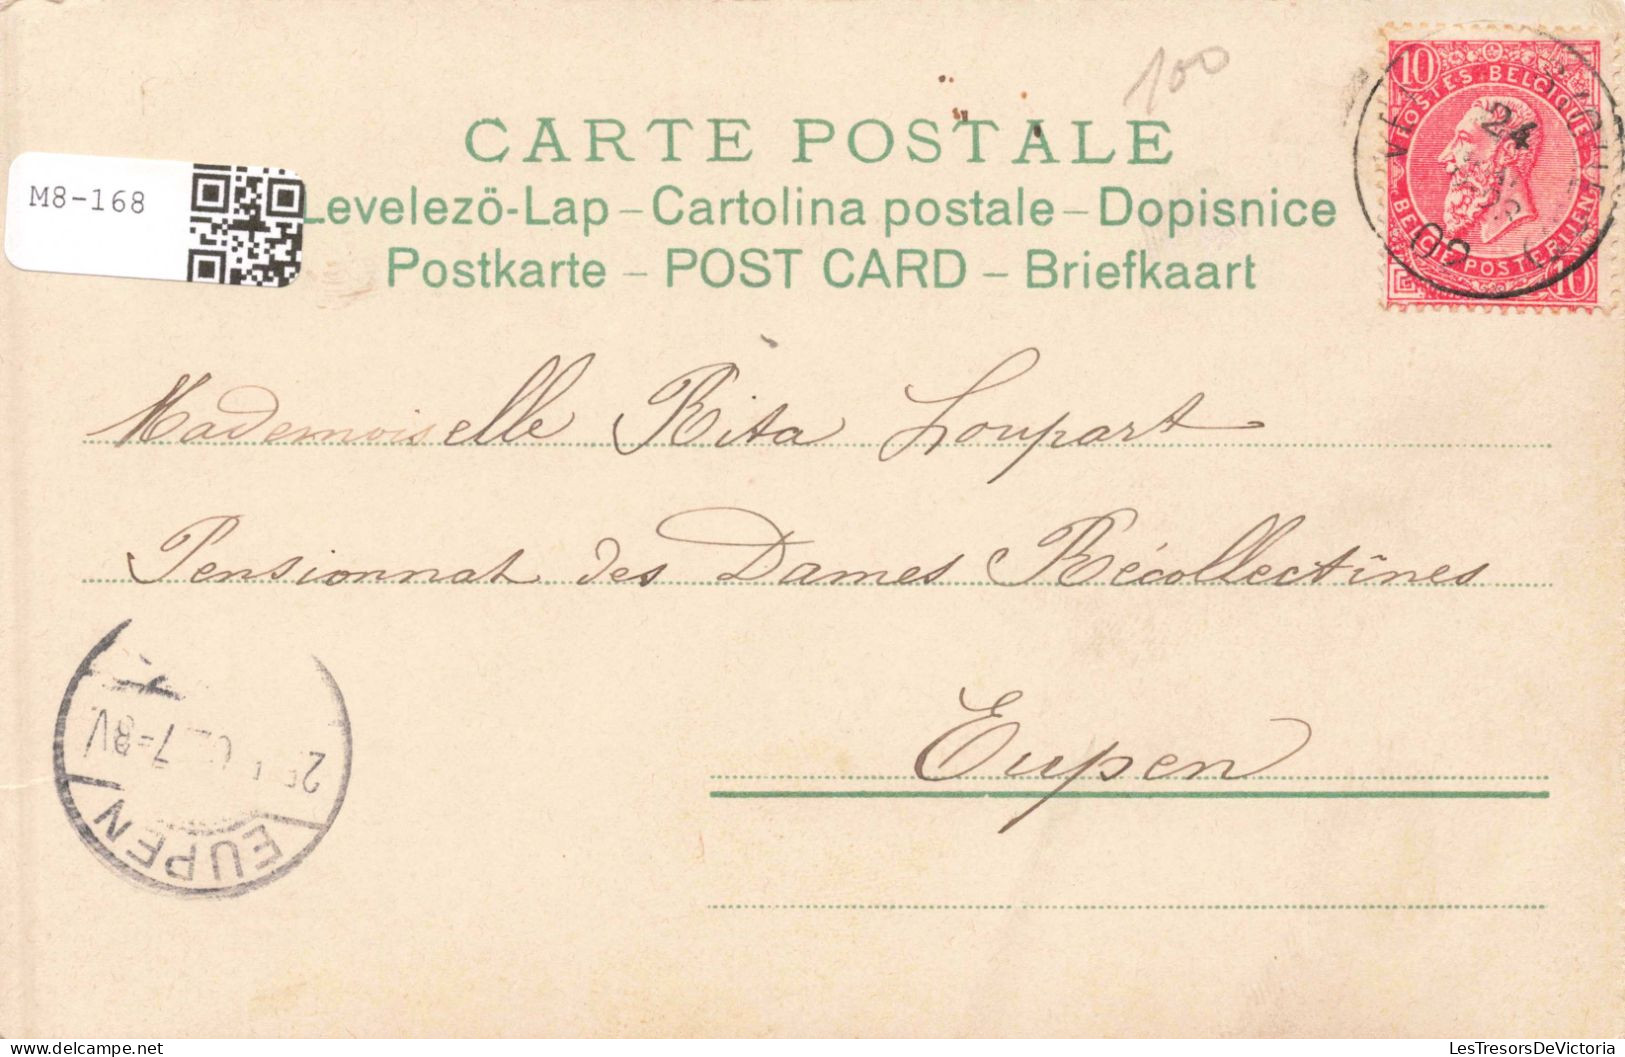 100
CARTE POSTALE
M8-168
Levelezö-Lap – Cartolina postale – Dopisnice
Postkarte – POST CARD – Briefkaart
10
POSTES BELGIQUE
24
02
BELGIË POSTERIJEN
10
Mademoiselle Rita Loupart
Pensionnat des Dames Récollectines
Eupen
7-8V
EUPEN
LesTresorsDeVictoria